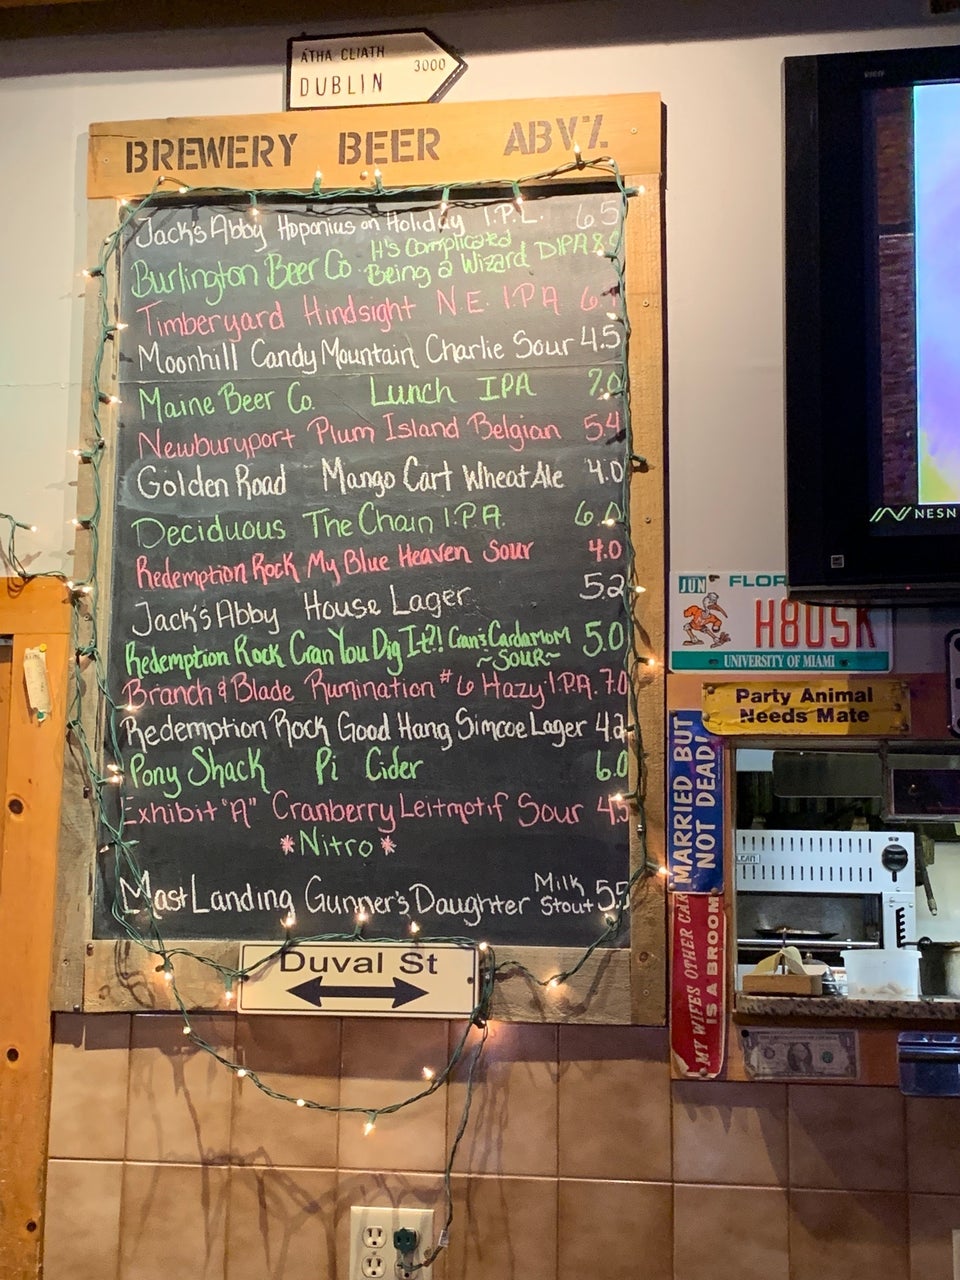 ÁTHA CLIATH 3000
DUBLIN
BREWERY BEER ABV%
Jack's Abby Hoponius on Holiday I.P.L. 6.5
Burlington Beer Co. It's Complicated
Being a Wizard DIPA
Timberyard Hindsight N.E. I.P.A.
Moonhill Candy Mountain Charlie Sour 4.5
Maine Beer Co. Lunch IPA 7.0
Newburyport Plum Island Belgian 5.4
Golden Road Mango Cart Wheat Ale 4.0
Deciduous The Chain I.P.A.
Redemption Rock My Blue Heaven Sour 4.0
Jack's Abby House Lager 5.2
Redemption Rock Cran You Dig It?! Cran & Cardamom 5.0
~SOUR~
Branch & Blade Rumination #6 Hazy I.P.A. 7.0
Redemption Rock Good Hang Simcoe Lager
Pony Shack Pi Cider 6.0
Exhibit "A" Cranberry Leitmotif Sour 4.5
*Nitro*
Mast Landing Gunner's Daughter Milk
Stout 5.5
Duval St
NESN
JUN FLOR
H8USK
UNIVERSITY OF MIAMI
Party Animal
Needs Mate
MARRIED BUT
NOT DEAD!
MY WIFES OTHER CAR
IS A BROOM